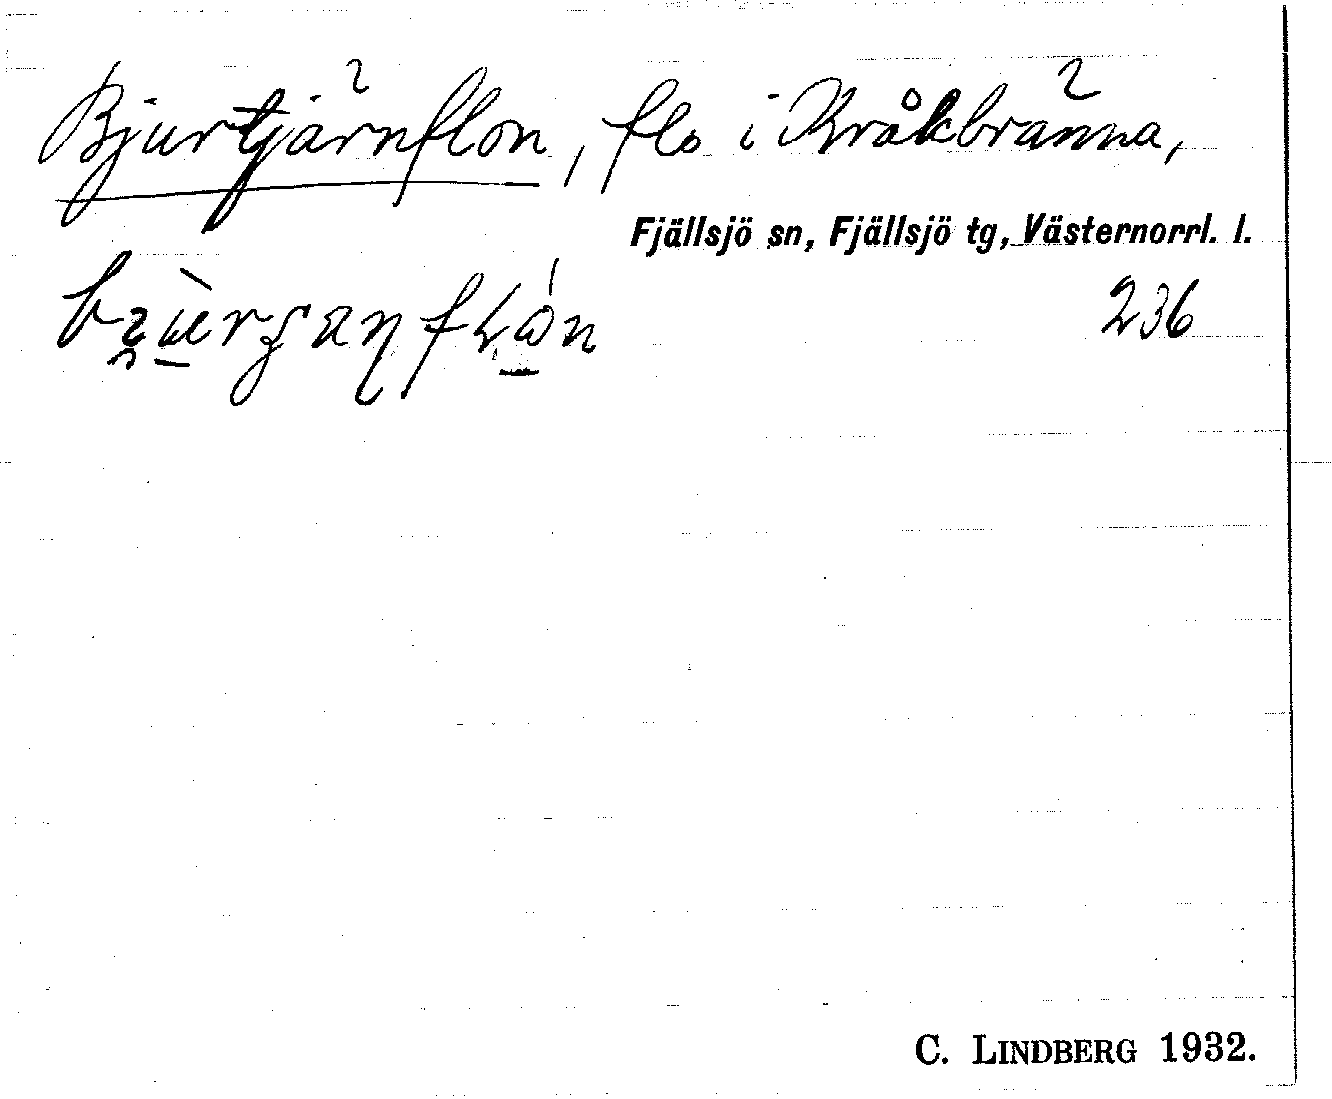 Bjurtjärnflon, flo i Kråkbränna,
Fjällsjö sn, Fjällsjö tg, Västernorrl. l.
236
C. LINDBERG 1932.